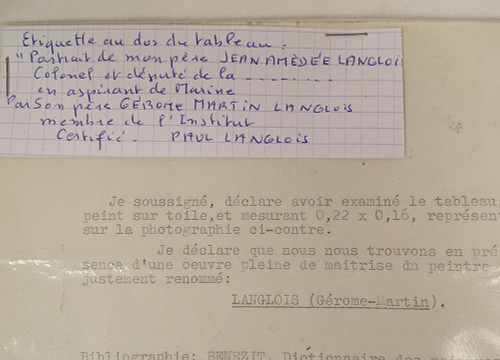 Etiquette au dos du tableau :
"Portrait de mon père JEAN AMÉDÉE LANGLOI
Colonel et député de la ........
en aspirant de Marine
Par Son père GÉROME MARTIN LANGLOIS
membre de l'Institut
Certifié. PAUL LANGLOIS
Je soussigné, déclare avoir examiné le tableau
peint sur toile,et mesurant 0,22 x 0,16, représen
sur la photographie ci-contre.
Je déclare que nous nous trouvons en pré
sence d'une oeuvre pleine de maitrise du peintre
justement renommé:
LANGLOIS (Gérome-Martin).
Bibliographie: BENEZIT, Dictionnaire des